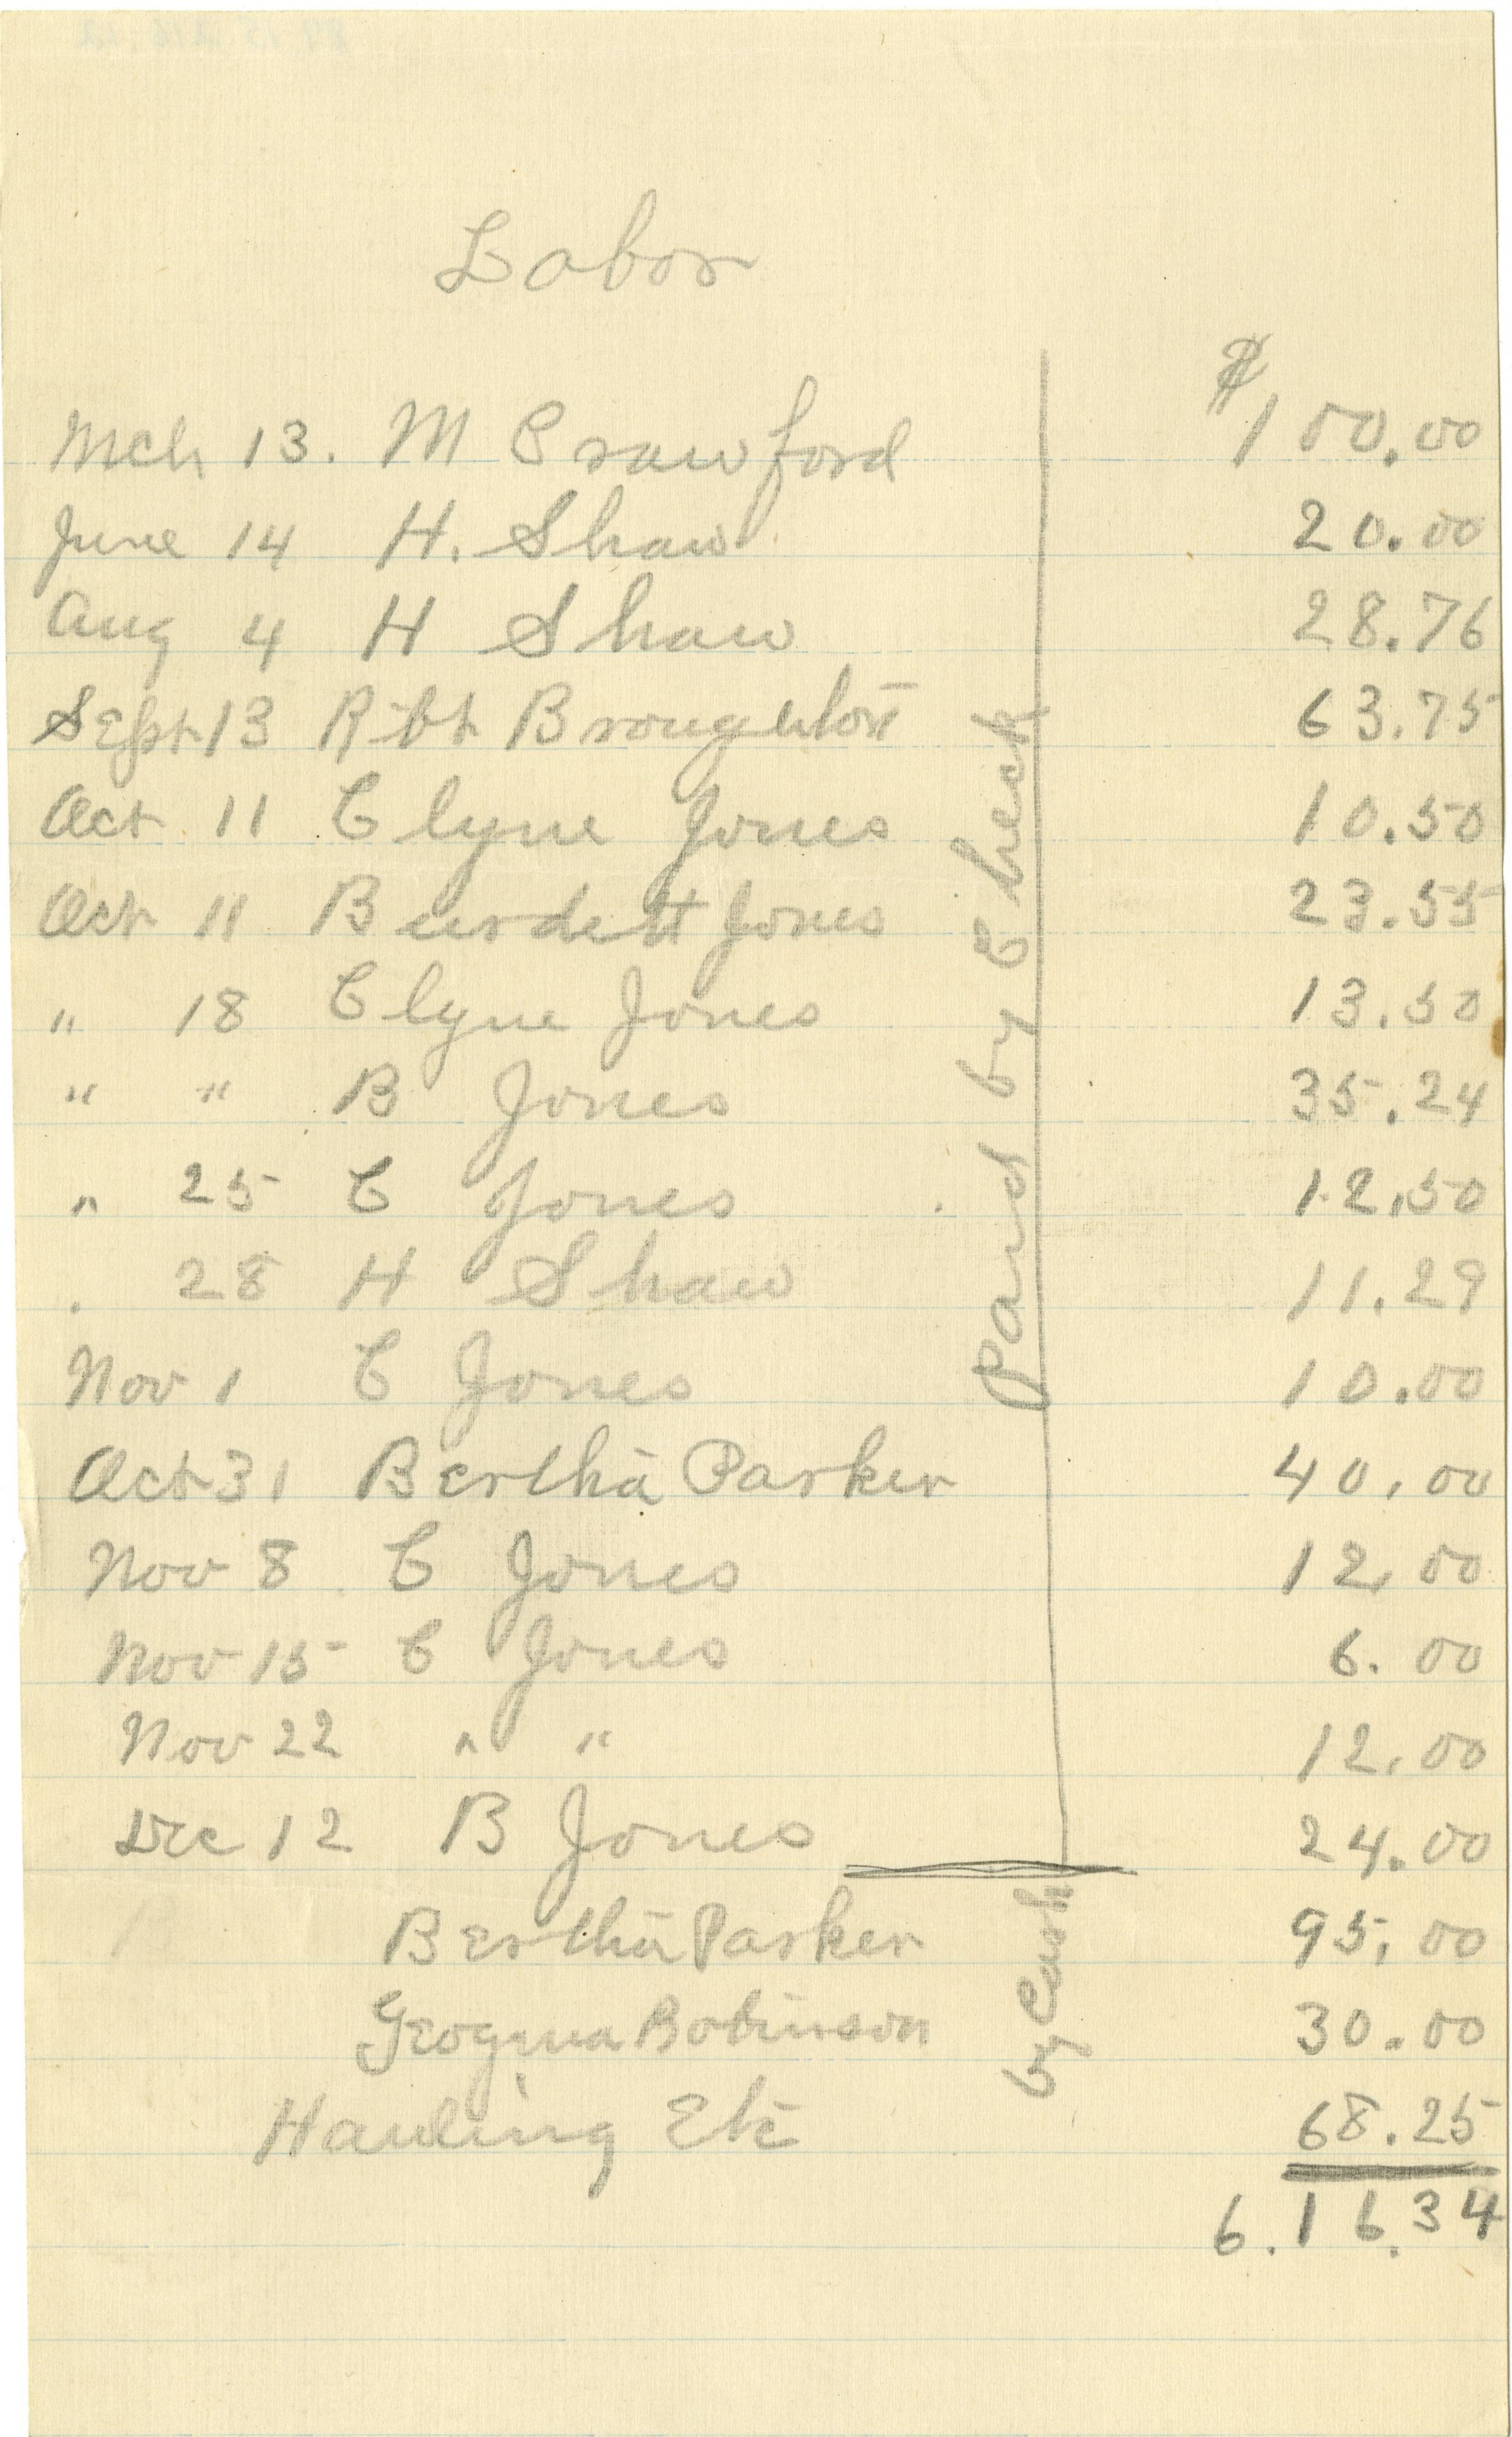 Labor
$
Mch 13. M Crawford 100.00
June 14 H. Shaw 20.00
Aug 4 H Shaw 28.76
Sept 13 Rbt Broughton 63.75
Oct 11 Clyne Jones 10.50
Oct 11 Burdett Jones 23.55
" 18 Clyne Jones 13.50
" " B Jones 35.24
" 25 C Jones 12.50
. 28 H Shaw 11.29
Nov 1 C Jones 10.00
Oct 31 Bertha Parker 40.00
Nov 8 C Jones 12.00
Nov 15 C Jones 6.00
Nov 22 " " 12.00
Dec 12 B Jones 24.00
Paid by Check
Bertha Parker 95.00
Geogina Robinson 30.00
Hauling Etc 68.25
by Cash
6.16.34